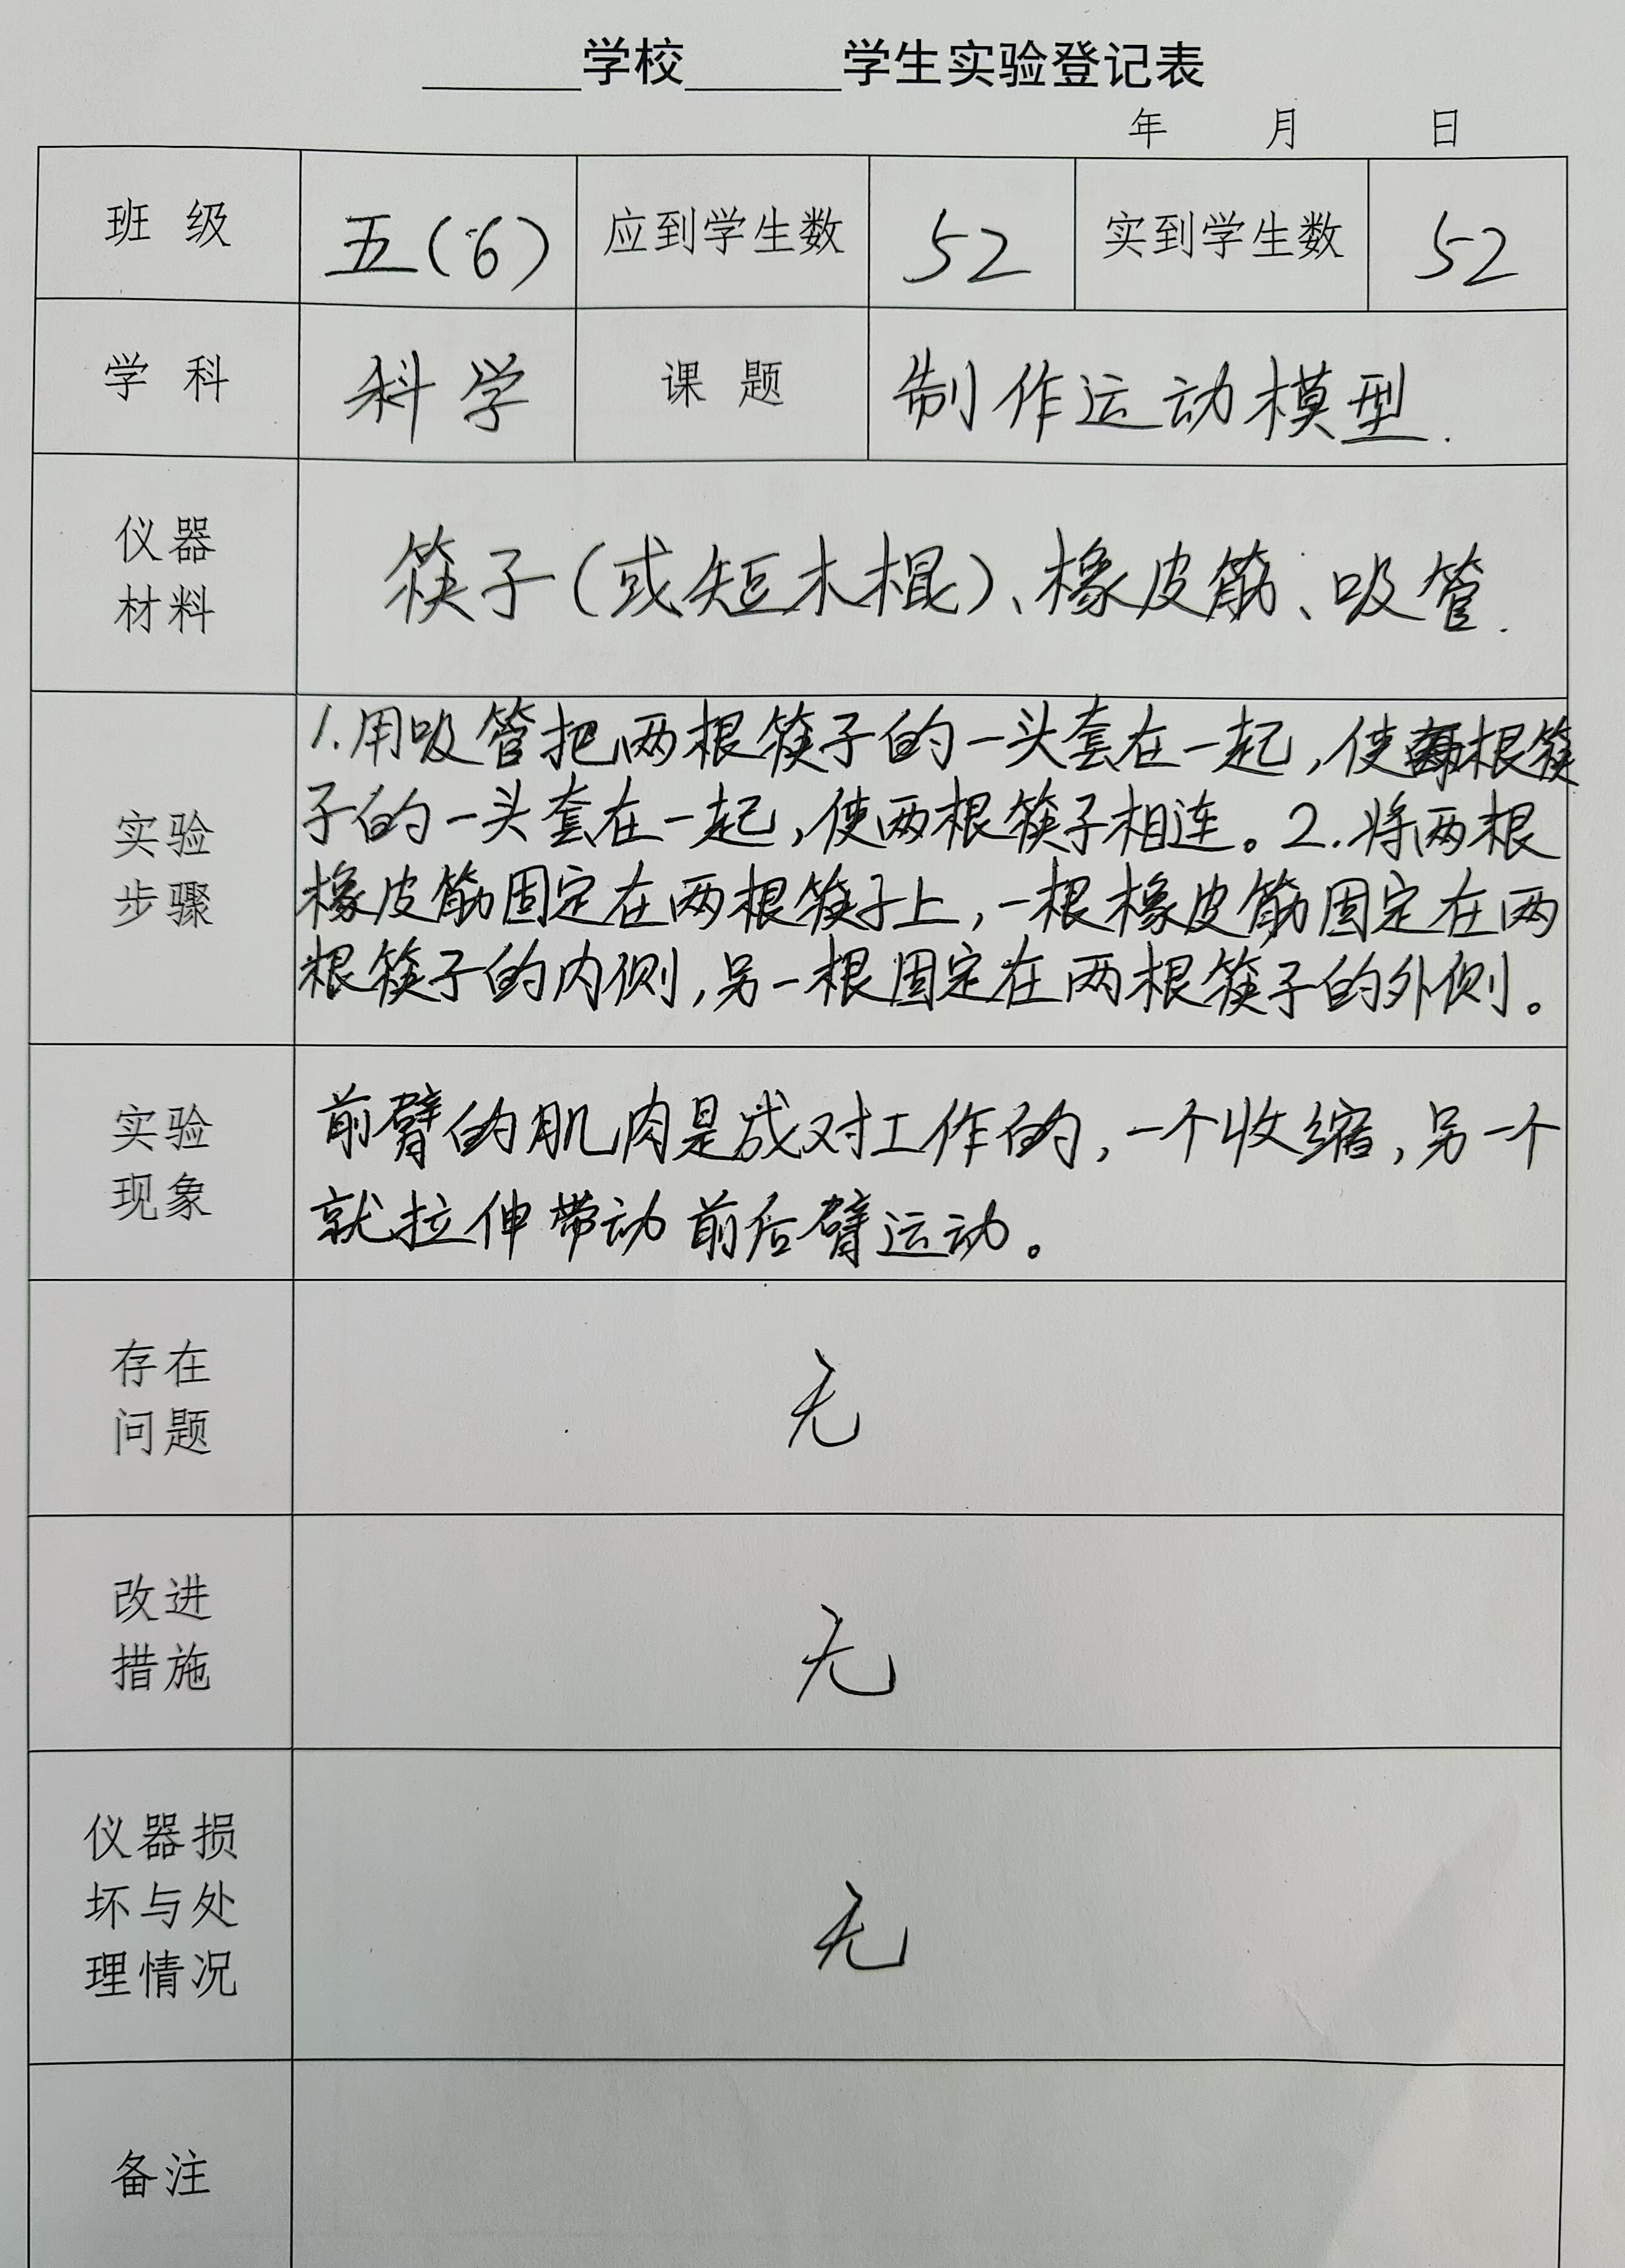 ______学校______学生实验登记表
年 月 日
班 级 五(6) 应到学生数 52 实到学生数 52
学 科 科学 课 题 制作运动模型.
仪器
材料
筷子(或短木棍)、橡皮筋、吸管.
实验
步骤
1.用吸管把两根筷子的一头套在一起,使两根筷
子的一头套在一起,使两根筷子相连。2.将两根
橡皮筋固定在两根筷子上,一根橡皮筋固定在两
根筷子的内侧,另一根固定在两根筷子的外侧。
实验
现象
前臂的肌肉是成对工作的,一个收缩,另一个
就拉伸带动前后臂运动。
存在
问题
无
改进
措施
无
仪器损
坏与处
理情况
无
备注